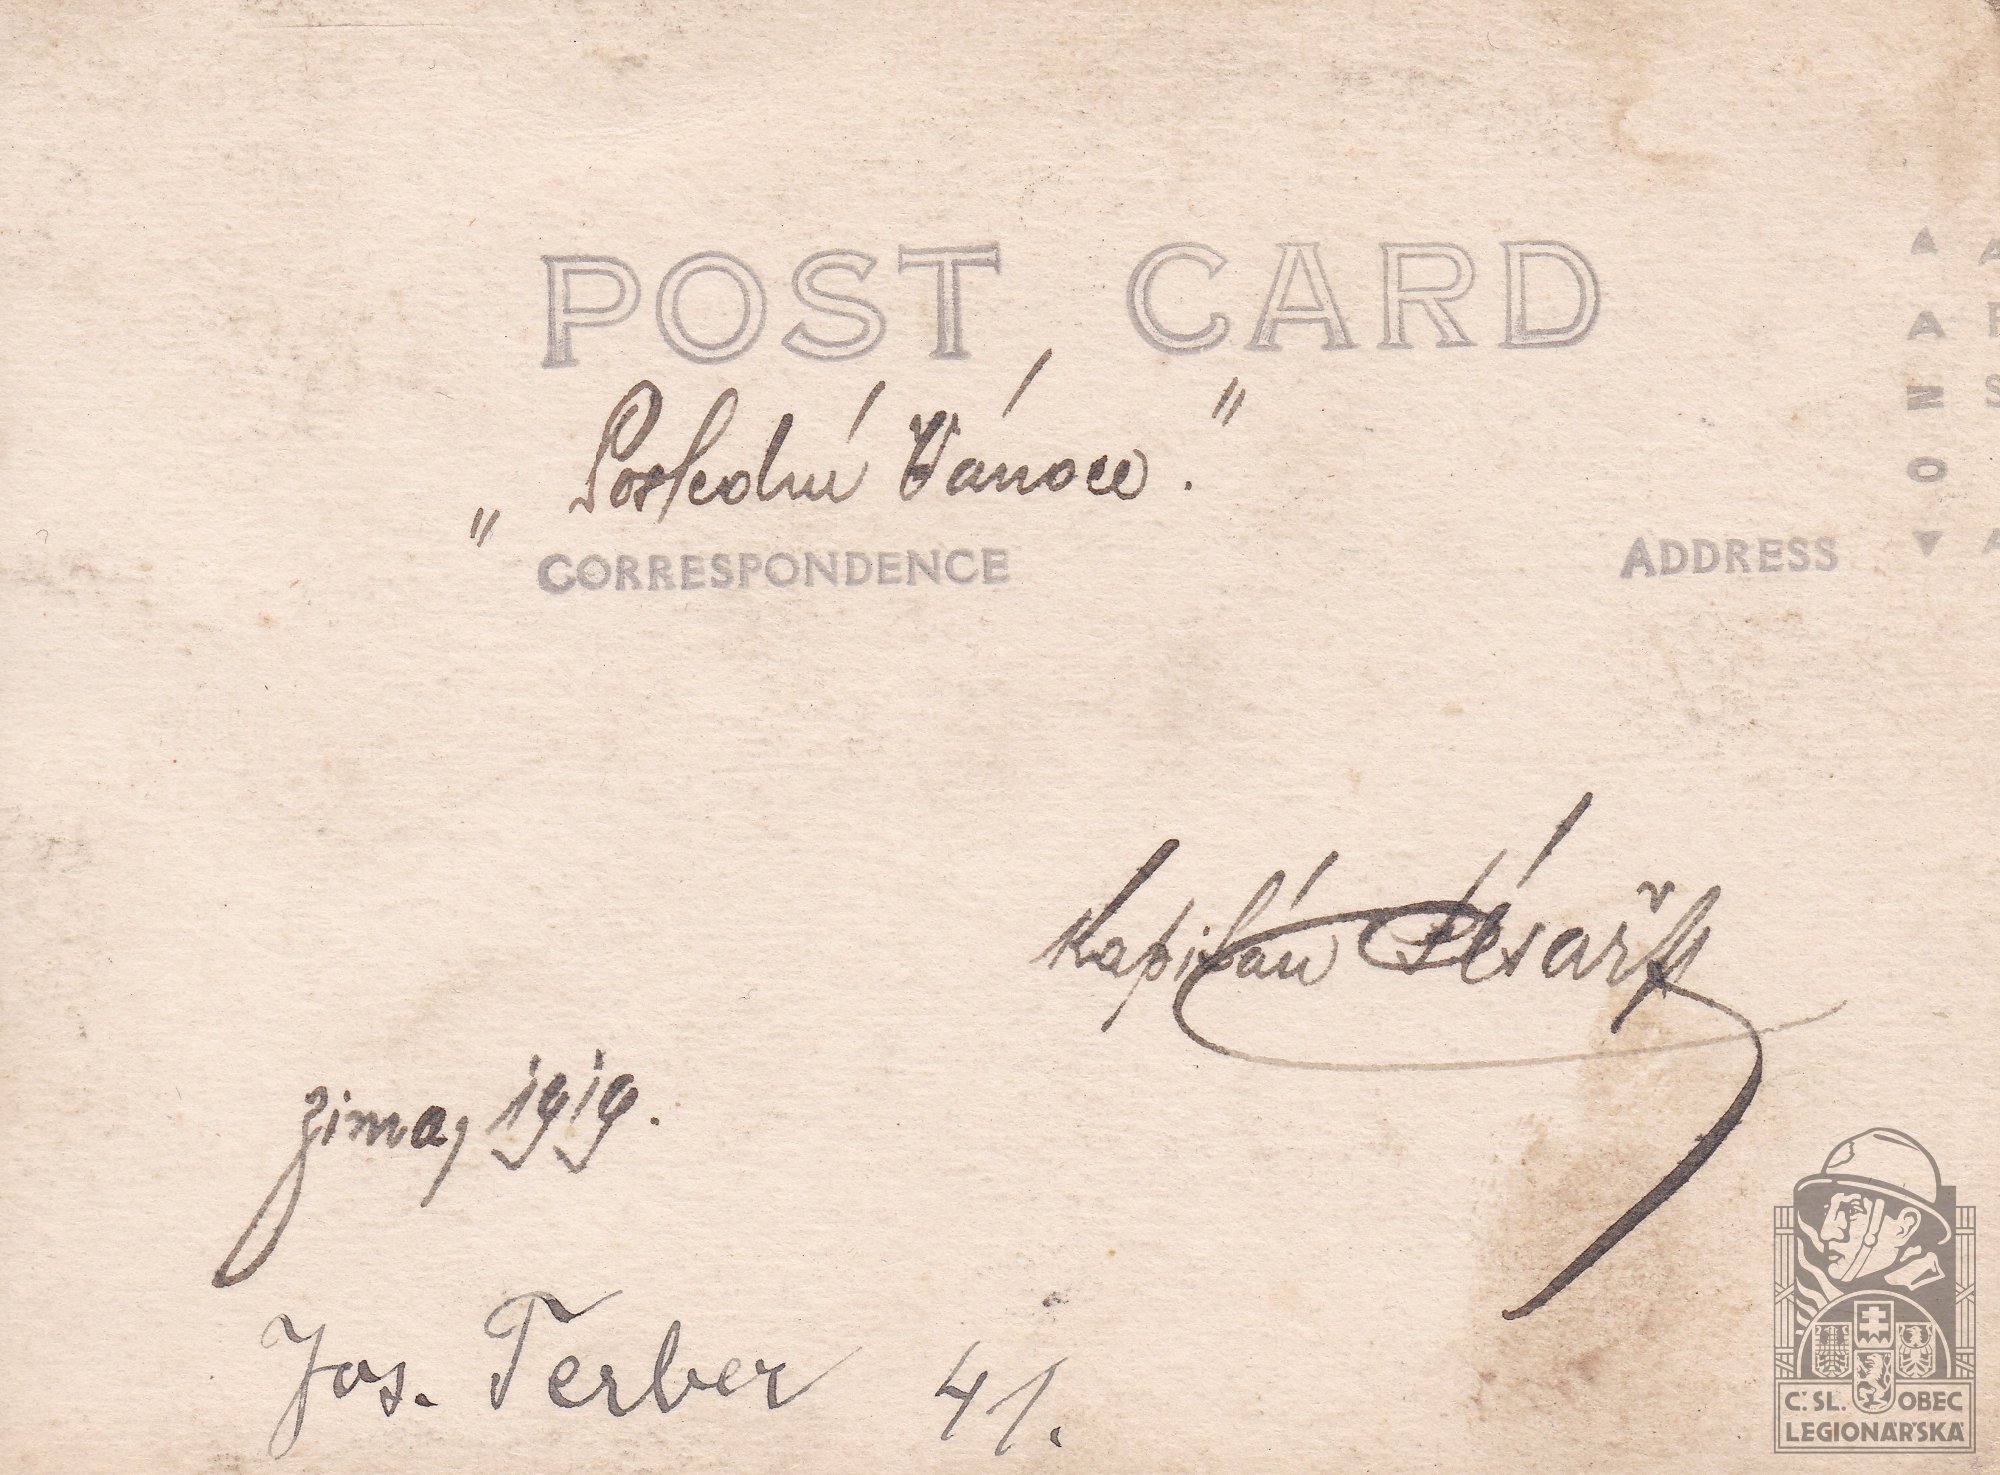 POST CARD
„Poslední Vánoce."
CORRESPONDENCE
ADDRESS
▲ A N O ▼
Kapitán
zima, 1919.
Jos. Ferber 41.
Č.SL. OBEC
LEGIONÁŘSKÁ